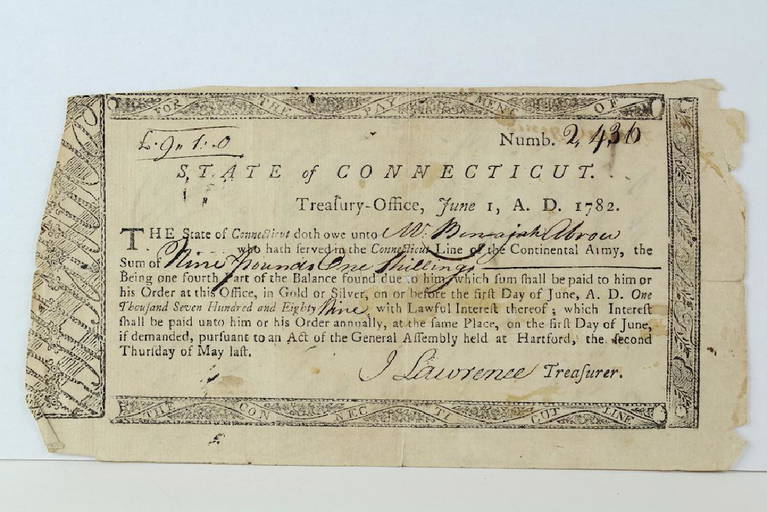 FOR THE PAY MENT OF
£. 9 " 1 : 0
Numb. 2,436
STATE of CONNECTICUT.
Treasury-Office, June 1, A. D. 1782.
THE State of Connecticut doth owe unto Mr. Benajah Abrow
who hath ſerved in the Connecticut Line of the Continental Army, the
Sum of Nine pounds One Shillings
Being one fourth Part of the Balance found due to him, which ſum ſhall be paid to him or
his Order at this Office, in Gold or Silver, on or before the firſt Day of June, A. D. One
Thouſand Seven Hundred and Eighty Nine with Lawful Intereſt thereof ; which Intereſt
ſhall be paid unto him or his Order annually, at the ſame Place, on the firſt Day of June,
if demanded, purſuant to an Act of the General Aſſembly held at Hartford, the ſecond
Thurſday of May laſt.
J Lawrence Treaſurer.
THE CON NEC TI CUT LINE